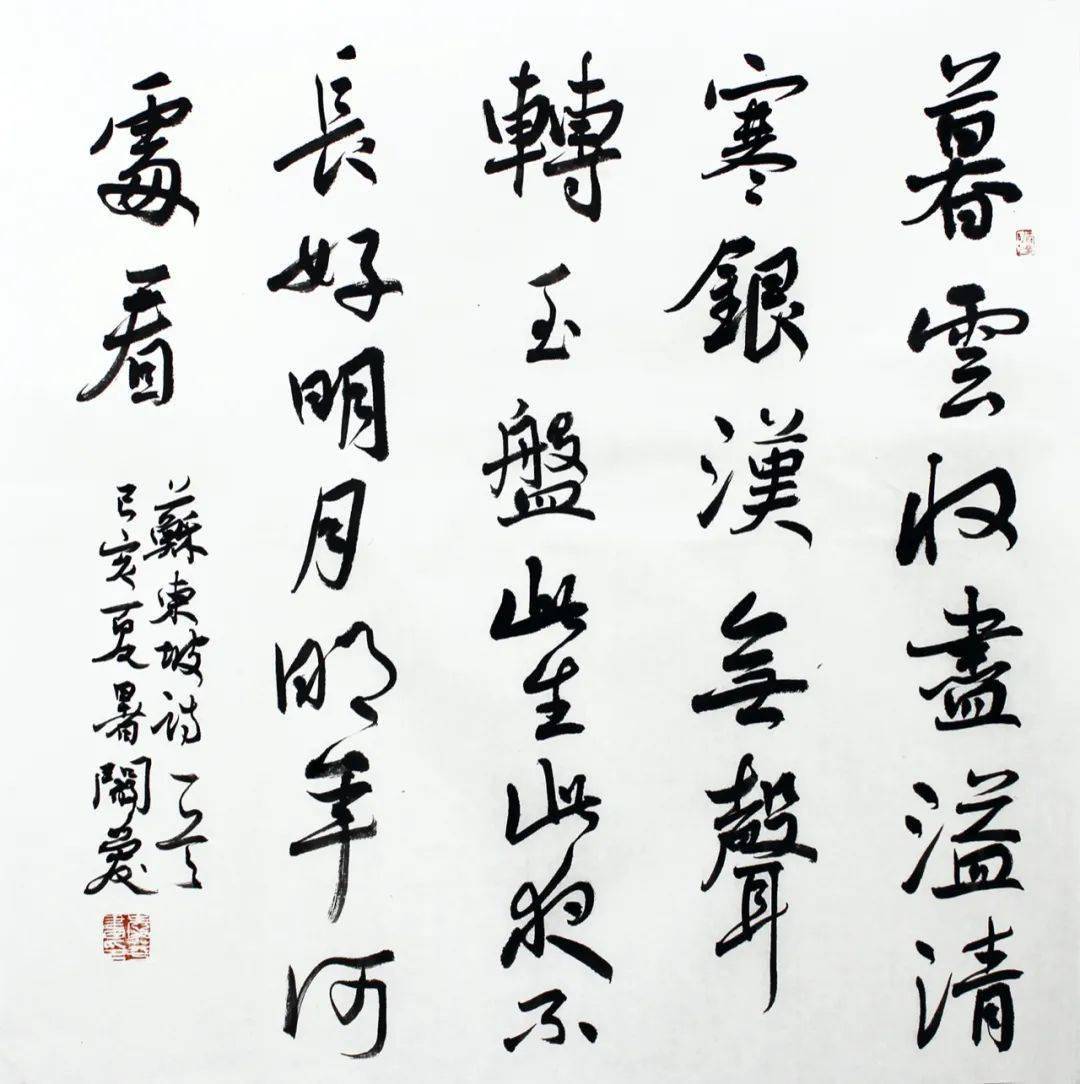 暮雲收盡溢清
寒銀漢無聲
轉玉盤此生此夜不
長好明月明年何
處看
蘇東坡詩一首
己亥夏暑關愛